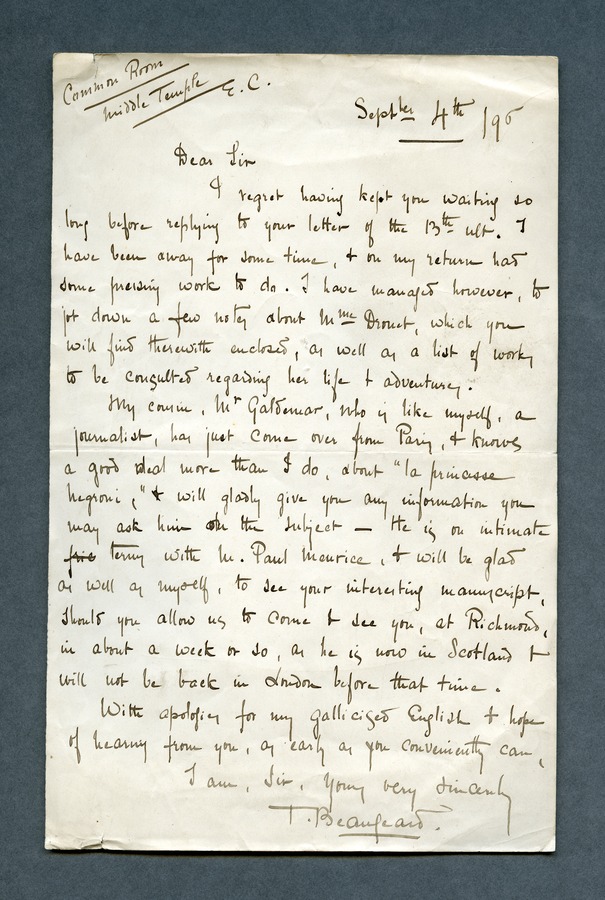 Common Room
Middle Temple E.C.
Septber 4th /96
Dear Sir
I regret having kept you waiting so
long before replying to your letter of the 13th ult. I
have been away for some time, & on my return had
some pressing work to do. I have managed however, to
jot down a few notes about Mme Drouet, which you
will find therewith enclosed, as well as a list of works
to be consulted regarding her life & adventures.
My cousin, Mr Galdemar, who is like myself, a
journalist, has just come over from Paris, & knows
a good deal more than I do, about "la princesse
Negroni," & will gladly give you any information you
may ask him on the subject — He is on intimate
terms with M. Paul Meurice, & will be glad
as well as myself, to see your interesting manuscript,
should you allow us to come & see you, at Richmond,
in about a week or so, as he is now in Scotland &
will not be back in London before that time.
With apologies for my gallicized English & hope
of hearing from you, as early as you conveniently can,
I am, Sir, Yours very sincerely
T. Beaugeard.